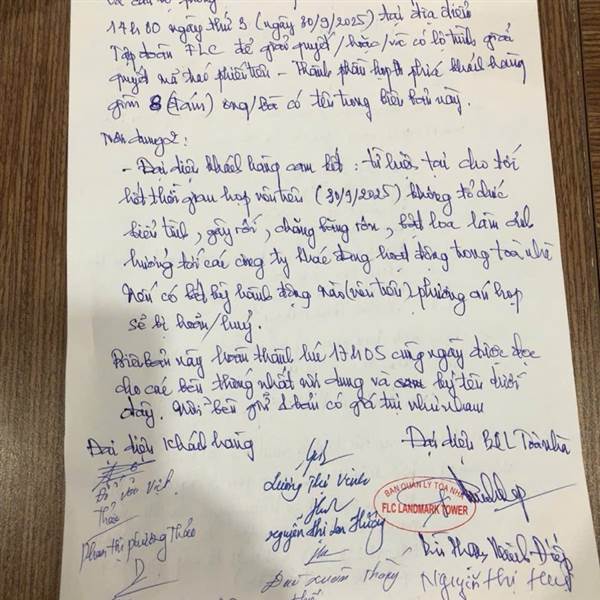 17h30 ngày thứ 3 (ngày 30/9/2025) tại địa điểm
Tập đoàn FLC để giải quyết/hoặc/và có lộ trình giải
quyết mà hai phiên trên - Thành phần họp thì phía khách hàng
gồm 8 (tám) ông/bà có tên trong biên bản này.
Nội dung 2:
- Đại diện khách hàng cam kết: từ hiện tại cho tới
hết thời gian họp nêu trên (30/9/2025) không tổ chức
biểu tình, gây rối, chăng băng rôn, bật loa làm ảnh
hưởng tới các công ty khác đang hoạt động trong toà nhà
Nếu có bất kỳ hành động nào (nêu trên) phương án họp
sẽ bị hoãn/huỷ.
Biên bản này hoàn thành lúc 17h05 cùng ngày được đọc
cho các bên thống nhất nội dung và ký tên dưới
đây. Mỗi bên giữ 1 bản có giá trị như nhau
Đại diện khách hàng
Đại diện BQL Toà nhà
Lương Thị Vinh
BAN QUẢN LÝ TOÀ NHÀ
FLC LANDMARK TOWER
Thảo
Phan thị phương Thảo
Nguyễn Thị Lan Hương
Nguyễn Thị Huệ